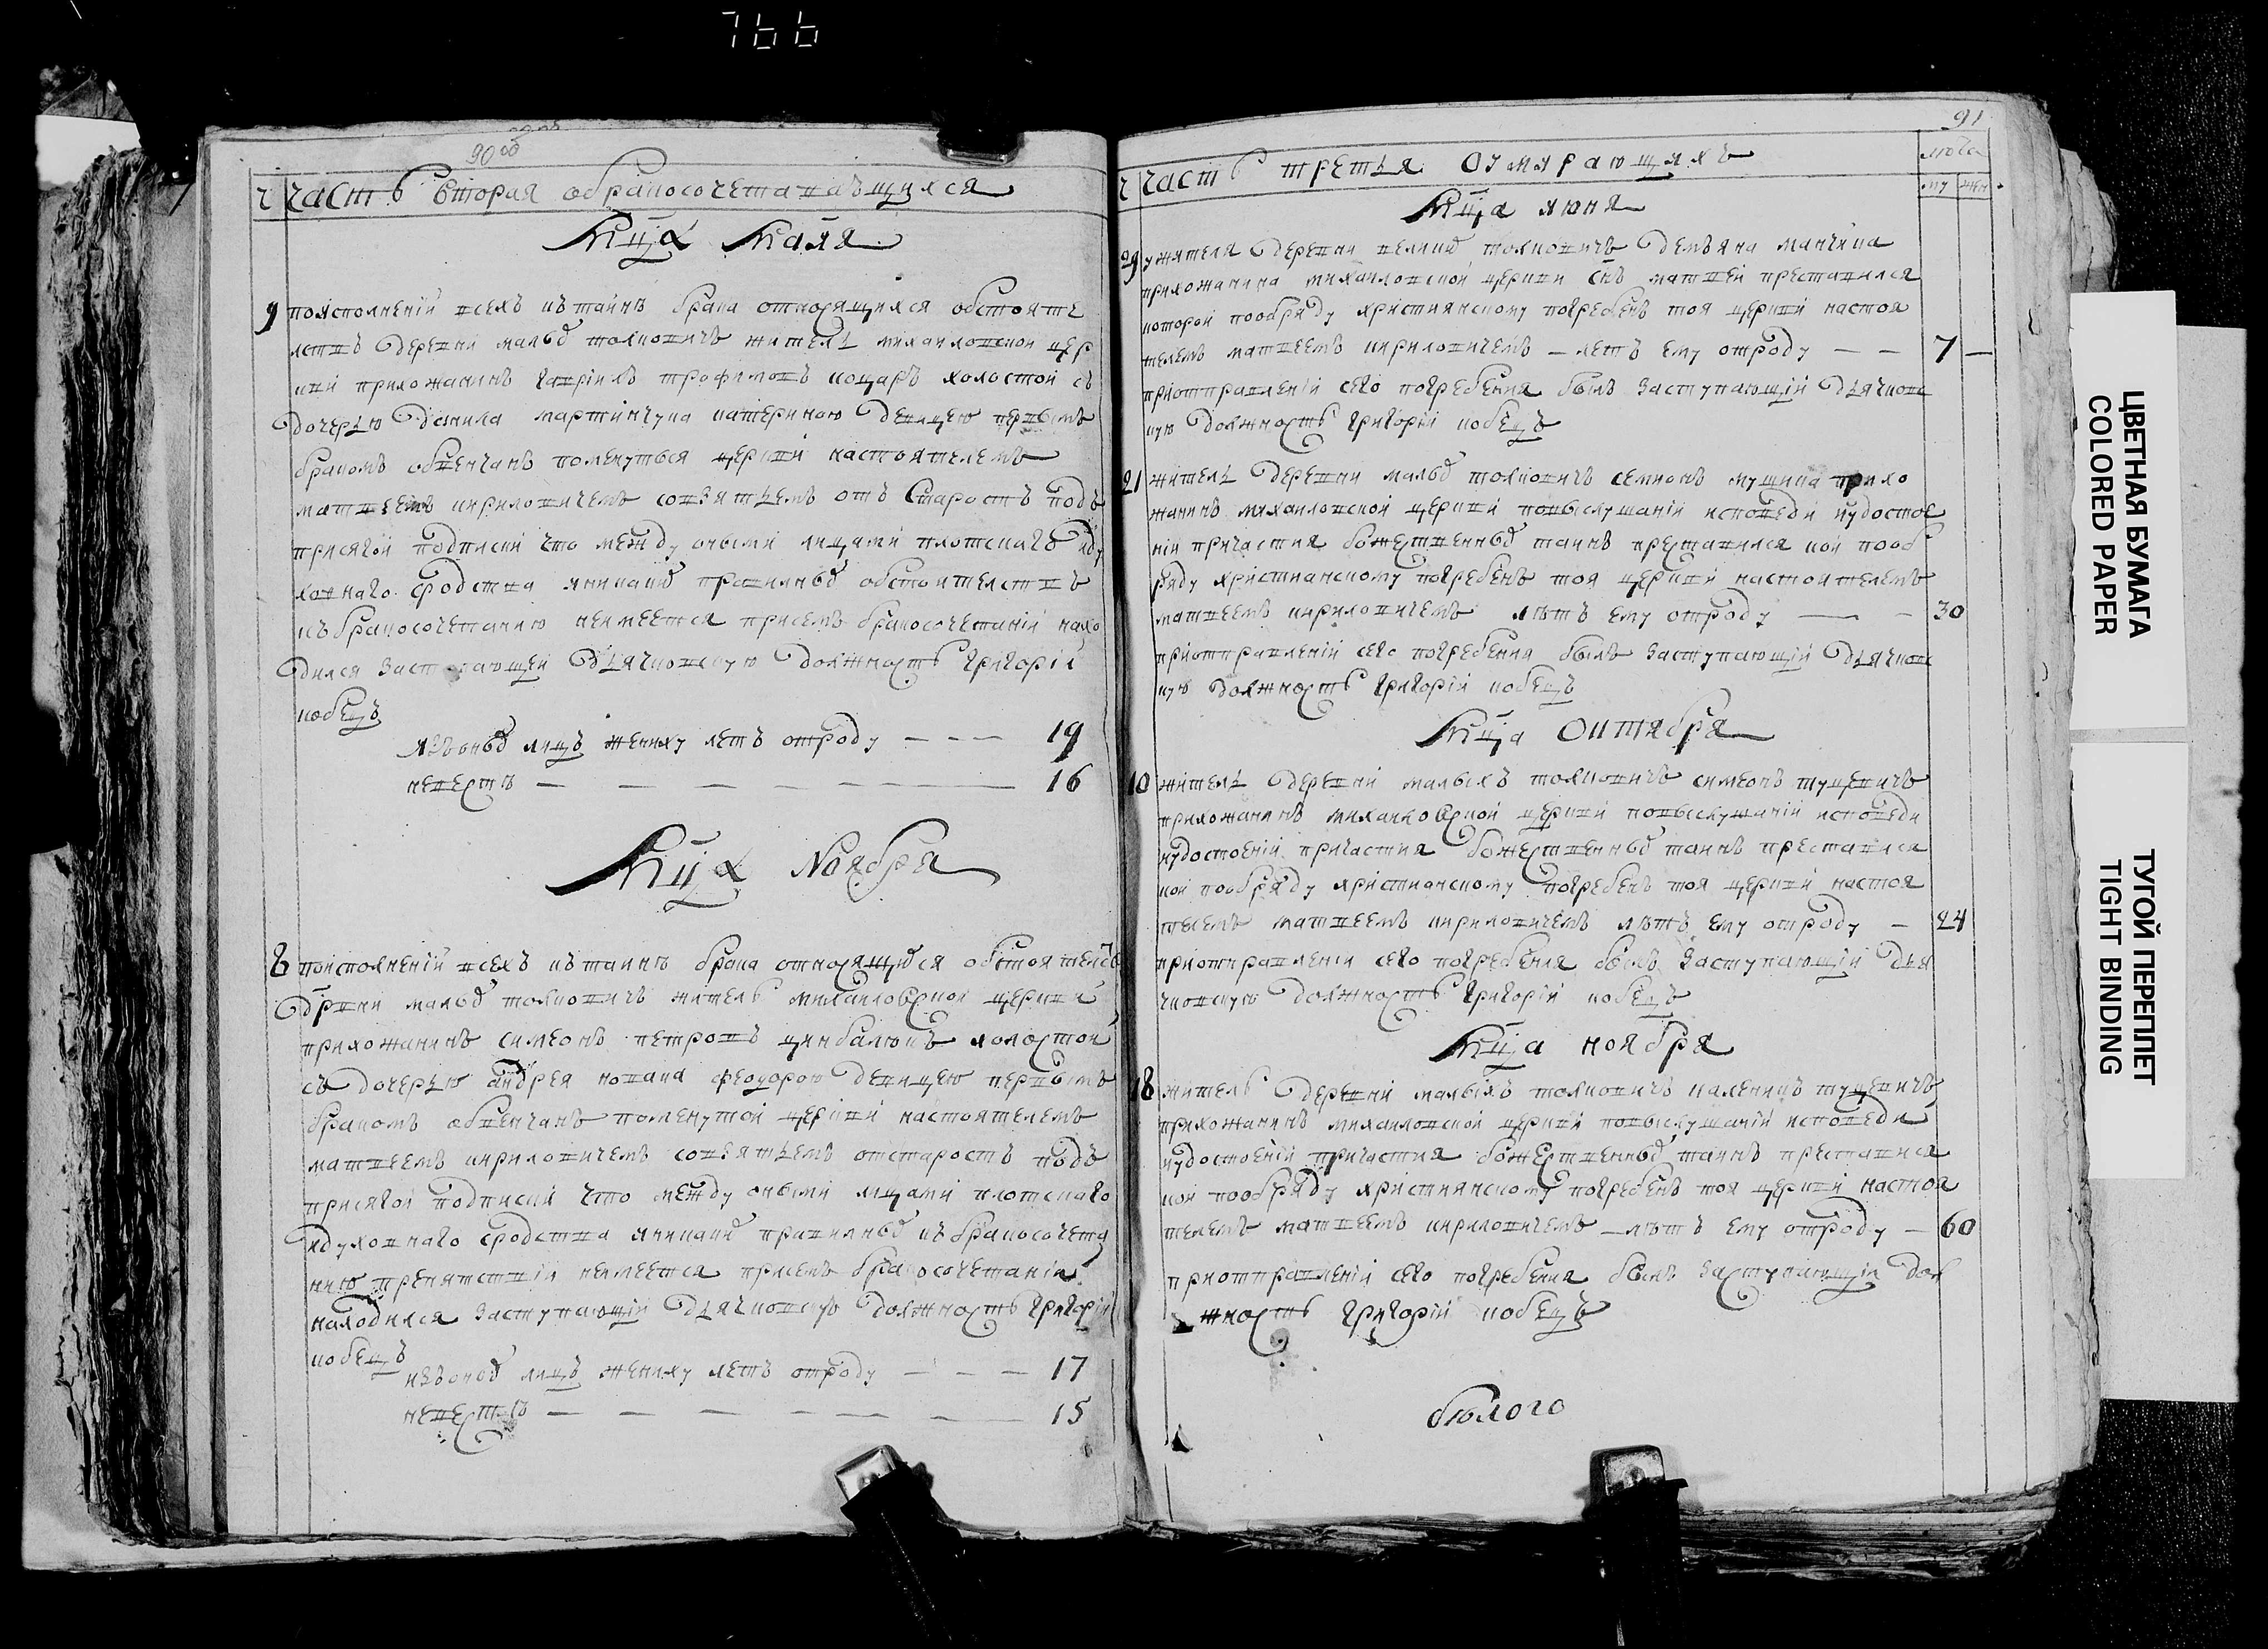 766
90 об
Ч Часть Вторая обракосочетавающихся
Мца Маия
9 поисполнении всехъ къ таинѣ брака относящихся обстояте
лствъ Деревни малых толковичъ жителъ михаиловской цер
кви прихожанинъ Гавріилъ трофимовъ коцаръ холостой съ
Дочерью Данила мартинчука катериною Девицею первымъ
бракомъ обвенчанъ поменутыя церкви настоятелемъ
матвеемъ кириловичемъ совзятьемъ отъ Старостъ подъ
присягой подписки что между оными лицами плотскаго иду
ховнаго сродства иникаких правилных обстоителствъ
къ бракосочетанию неимеется присемъ бракосочетаніи нахо
дился Заступающей Дьячковскую Должность Григоріи
кобецъ
изъоных лицъ жениху летъ отроду — — — 19
невестѣ — — — — — 16
Мца Ноября
8 поисполненій всехъ къ таинѣ брака относящихся обстоятелсв
Дрвни малых толковичъ житель михаиловской церкви
прихожанинъ симеонъ петровъ цинбалюкъ холостой
съ дочерью андрея новака феодорою Девицею первымъ
бракомъ обвенчанъ поменутой церкви настоятелемъ
матвеемъ кириловичемъ совзятьемъ отстаростъ подъ
присягой подписки что между оными лицами плотскаго
идуховнаго сродства иникаких правилных къ бракосочета
нию препятствій неимеется присемъ бракосочетаніи
находился Заступающій Дьячковскую Должность Григоріи
кобецъ
изъоных лицъ жениху летъ отроду — — — 17
невестѣ — — — — — 15
91
Ч Часть третья Оумирающихъ
лѣта
му жен
Мца июня
29 ужителя Деревни велких толковичъ Демъяна манчука
прихожанина михаиловской церкви снъ матвей преставился
которой пообряду християнскому погребенъ тоя церкви настоя
телемъ матвеемъ кириловичемъ — летъ ему отроду — — 7 —
приотправленій сего погребения былъ Заступающій Дьячковс
кую Должность Григорій кобецъ
21 жителъ Деревни малых толковичъ семионъ прихо
жанинъ михаиловской церкви повыслушаній исповеди иудостое
ніи причастия божественных таинъ преставился кой пооб
ряду християнскому погребенъ тоя церкви настоятелемъ
матвеемъ кириловичемъ лѣтъ ему отроду — — 30
приотправленій сего погребения былъ Заступающій Дьячковс
кую Должность Григорій кобецъ
Мца Октября
10 жителъ Деревни малыхъ толковичъ симеонъ туцевичъ
прихожанинъ михаиловской церкви повыслушаній исповеди
иудостоеній причастия божественных таинъ преставился
кой пообряду християнскому погребенъ тоя церкви настоя
телемъ матвеемъ кириловичемъ лѣтъ ему отроду — 24
приотправлении сего погребения былъ Заступающій Дья
чковскую Должность Григорій кобецъ
Мца ноября
18 житель Деревни малыхъ толковичъ каленикъ туцевичъ
прихожанинъ михаиловской церкви повыслушаній исповеди
иудостоеній причастия божественных таинъ преставился
кой пообряду християнскому погребенъ тоя церкви настоя
телемъ матвеемъ кириловичемъ — лѣтъ ему отроду — 60
приотправленій сего погребения былъ Заступающій Дол
жность Григорій кобецъ
бѣлого
ЦВЕТНАЯ БУМАГА
COLORED PAPER
ТУГОЙ ПЕРЕПЛЕТ
TIGHT BINDING